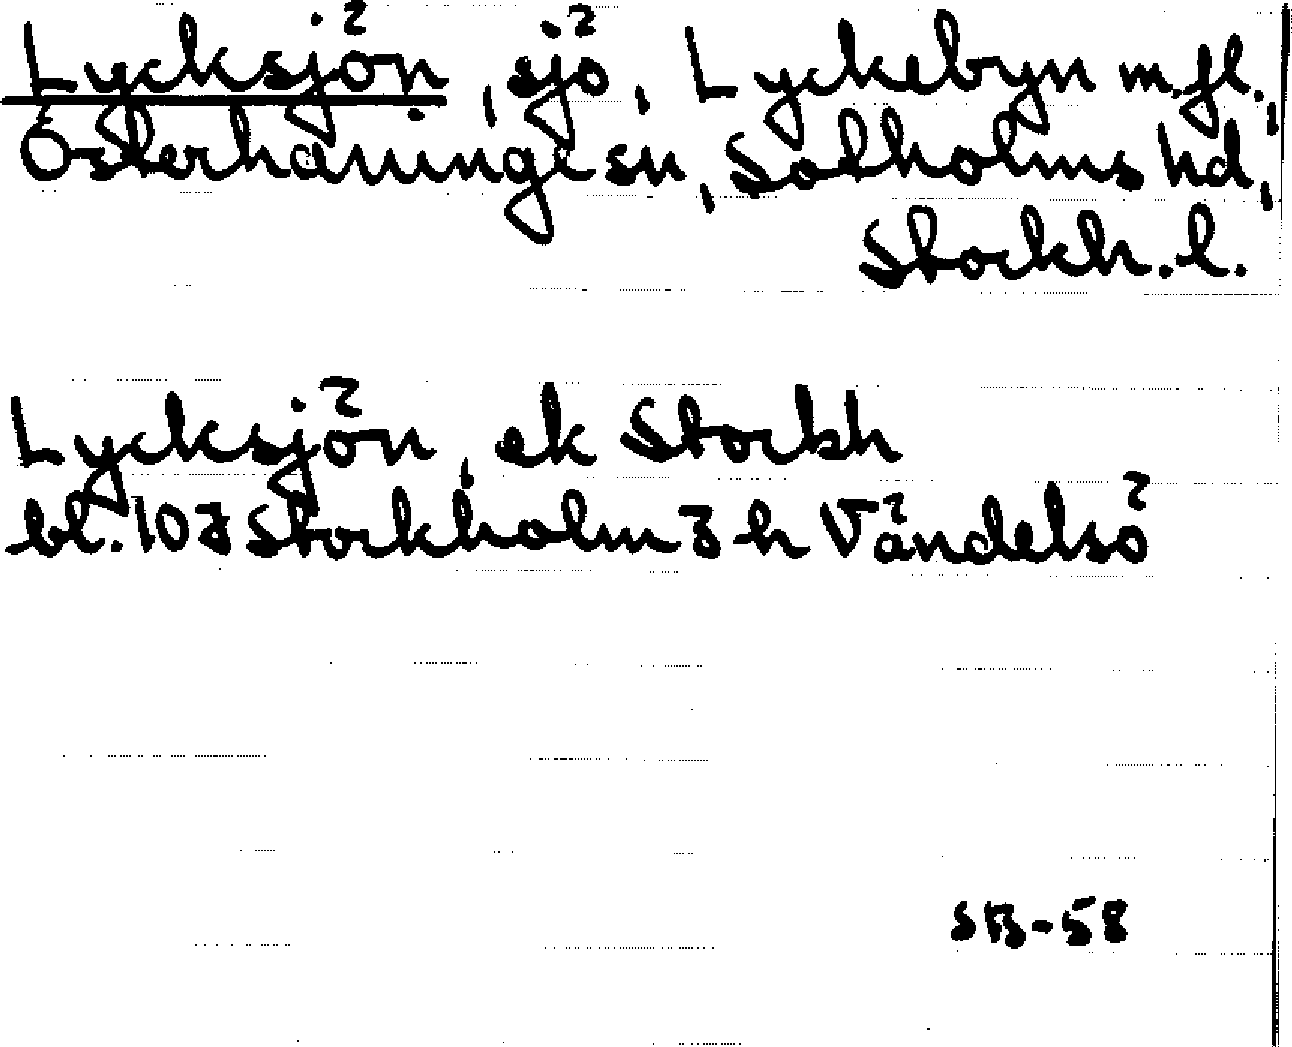 Lycksjön, sjö, Lyckebyn m.fl.,
Österhaninge sn, Sotholms hd,
Stockh. l.
Lycksjön, ek Stockh
bl. 107 Stockholm 3 h Vändelsö
SB-58